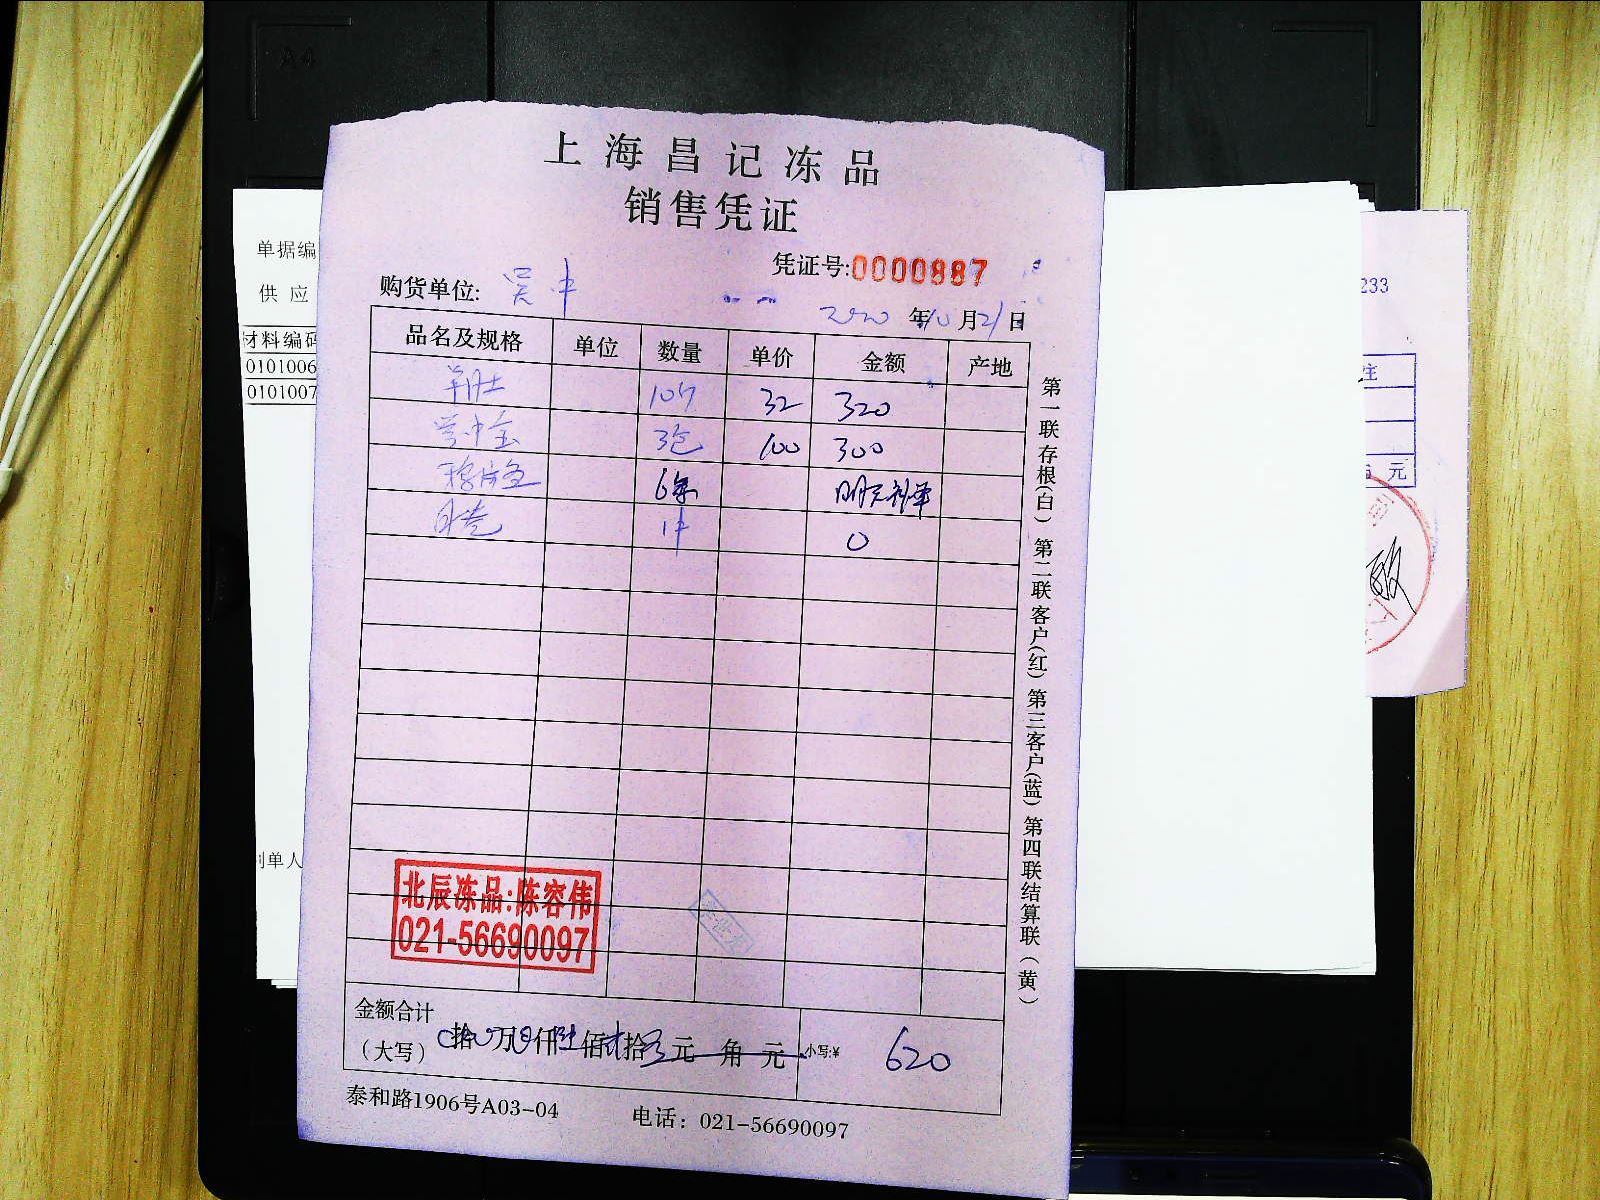 A4
上海昌记冻品
销售凭证
凭证号:0000887
购货单位: 吴中
2020 年 10 月 21 日
品名及规格 单位 数量 单价 金额 产地
羊肚 10斤 32 320
3包 100 300
6条 明天补单
月亮 1件 0
北辰冻品:陈容伟
021-56690097
金额合计
(大写) 0拾0万0仟陆佰贰拾0元 角 元 小写:¥ 620
泰和路1906号A03-04 电话: 021-56690097
第一联存根(白) 第二联客户(红) 第三客户(蓝) 第四联结算联(黄)
单据编
供 应
材料编码
0101006
0101007
制单人
233
注
元
司